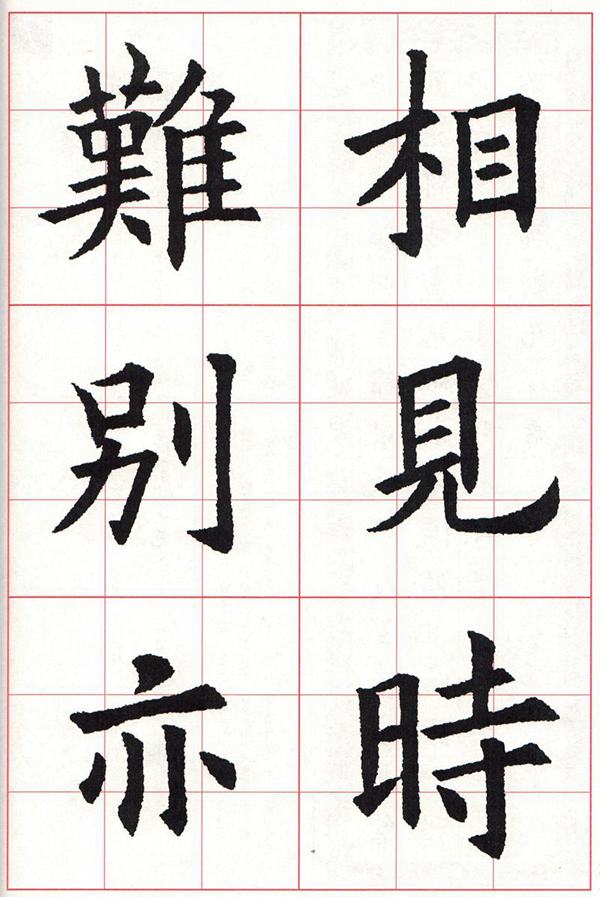 相見時
難別亦